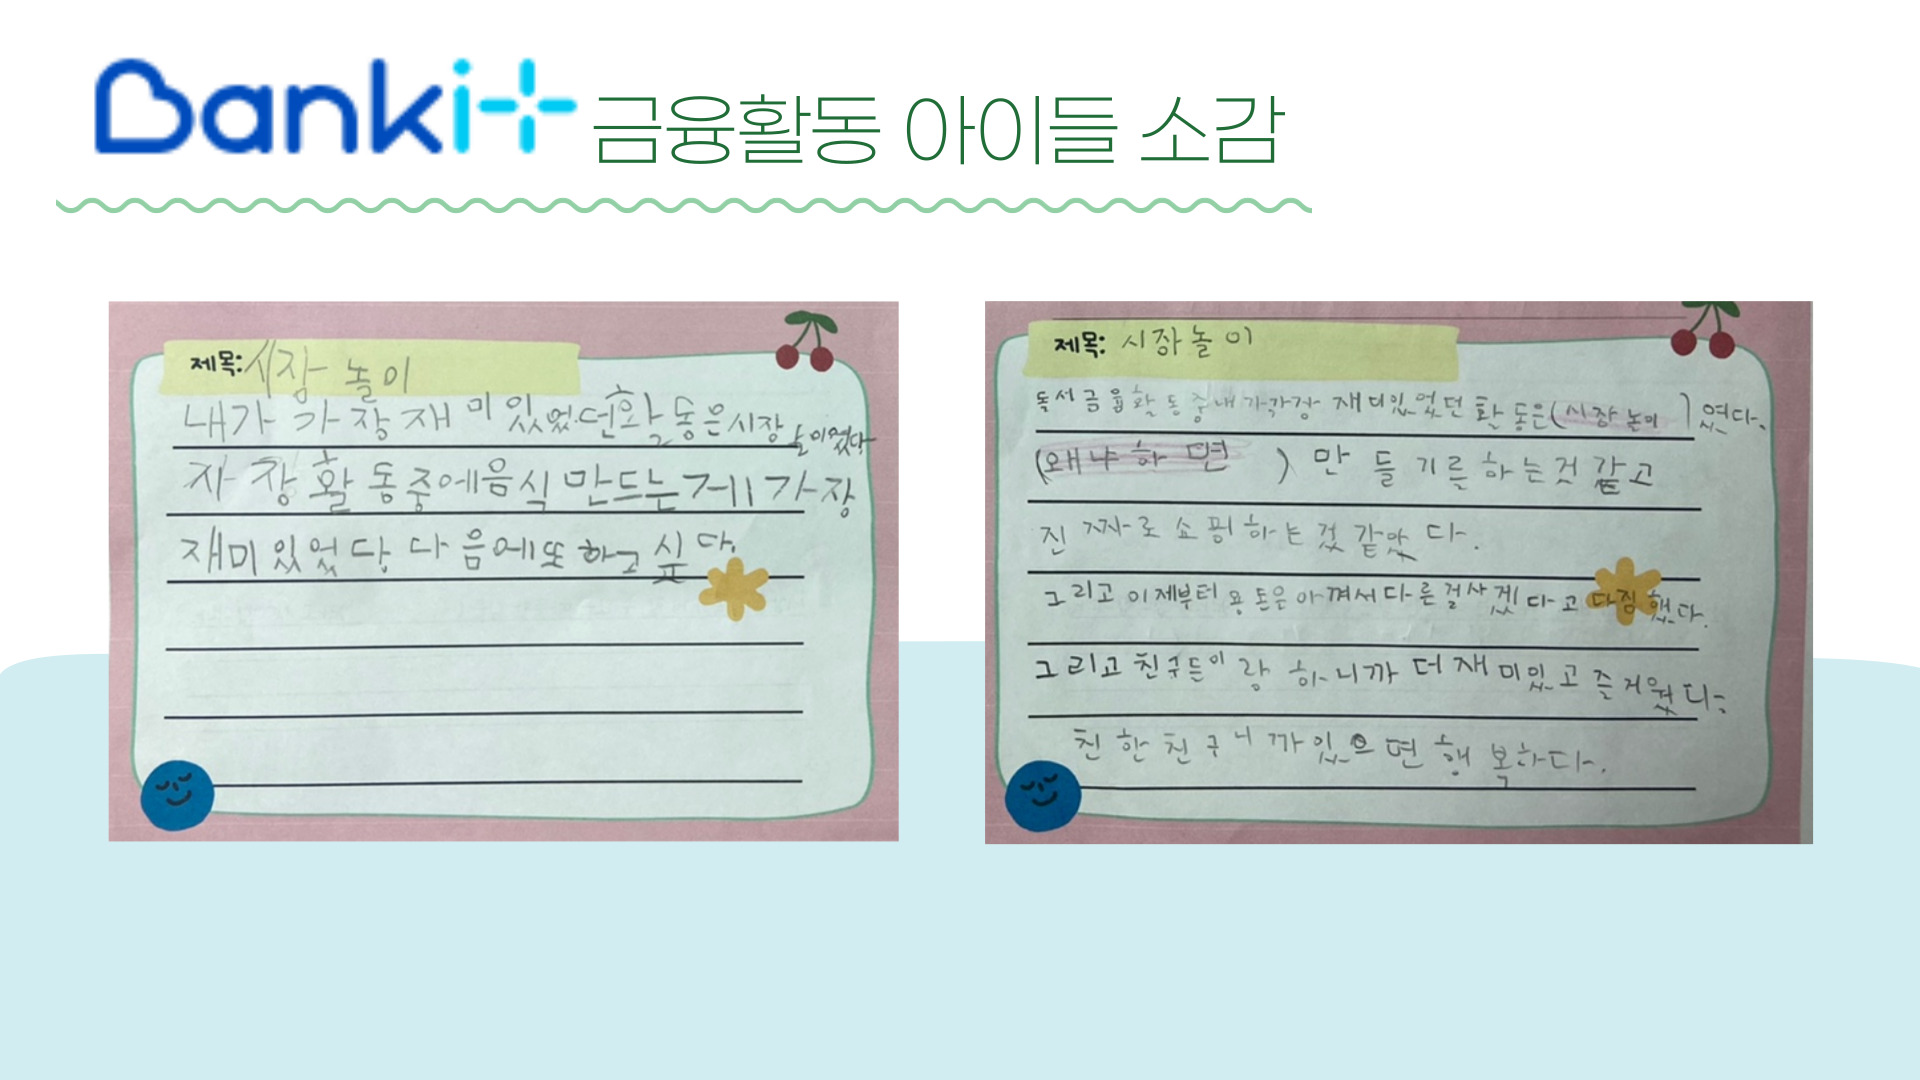 Banki 금융활동 아이들 소감
제목: 시장 놀이
내가 가장재미있었던활동은시장놀이였다
자 장활동중에음식만드는게가장
재미있었다. 다음에또하고싶다.
제목: 시장놀이
독서금융활동중내가가장 재미있었던 활동은(시장놀이) 였다.
(왜냐하면) 만들기를하는것 같고
진짜로쇼핑하는것 같았다.
그리고 이제부터 용돈은 아껴서다른걸사겠다고 다짐했다.
그리고 친구들이랑 하니까 더재미있고 즐거웠다.
친한친구니까있으면 행복하다.